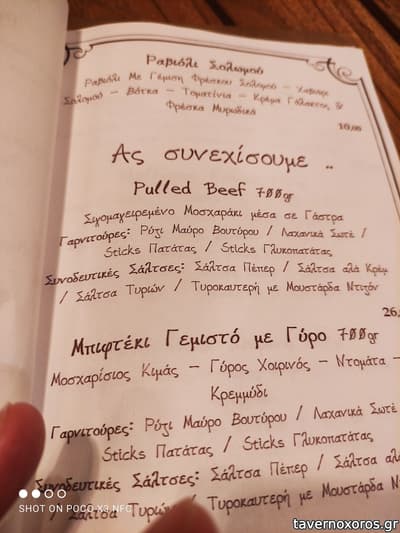 Ραβιόλι Σολομού
Ραβιόλι Με Γέμιση Φρέσκου Σολομού – Χαβιάρι
Σολομού – Βότκα – Τοματίνια – Κρέμα Γάλακτος &
Φρέσκα Μυρωδικά
10,00
Ας συνεχίσουμε ..
Pulled Beef 700gr
Σιγομαγειρεμένο Μοσχαράκι μέσα σε Γάστρα
Γαρνιτούρες: Ρύζι Μαύρο Βουτύρου / Λαχανικά Σωτέ /
Sticks Πατάτας / Sticks Γλυκοπατάτας
Συνοδευτικές Σάλτσες: Σάλτσα Πέπερ / Σάλτσα αλά Κρέμ
/ Σάλτσα Τυριών / Τυροκαυτερή με Μουστάρδα Ντιζόν
26,
Μπιφτέκι Γεμιστό με Γύρο 700gr
Μοσχαρίσιος Κιμάς – Γύρος Χοιρινός – Ντομάτα –
Κρεμμύδι
Γαρνιτούρες: Ρύζι Μαύρο Βουτύρου / Λαχανικά Σωτέ
Sticks Πατάτας / Sticks Γλυκοπατάτας
Συνοδευτικές Σάλτσες: Σάλτσα Πέπερ / Σάλτσα αλ
/ Σάλτσα Τυριών / Τυροκαυτερή με Μουστάρδα Ν
SHOT ON POCO X3 NFC
tavernoxoros.gr